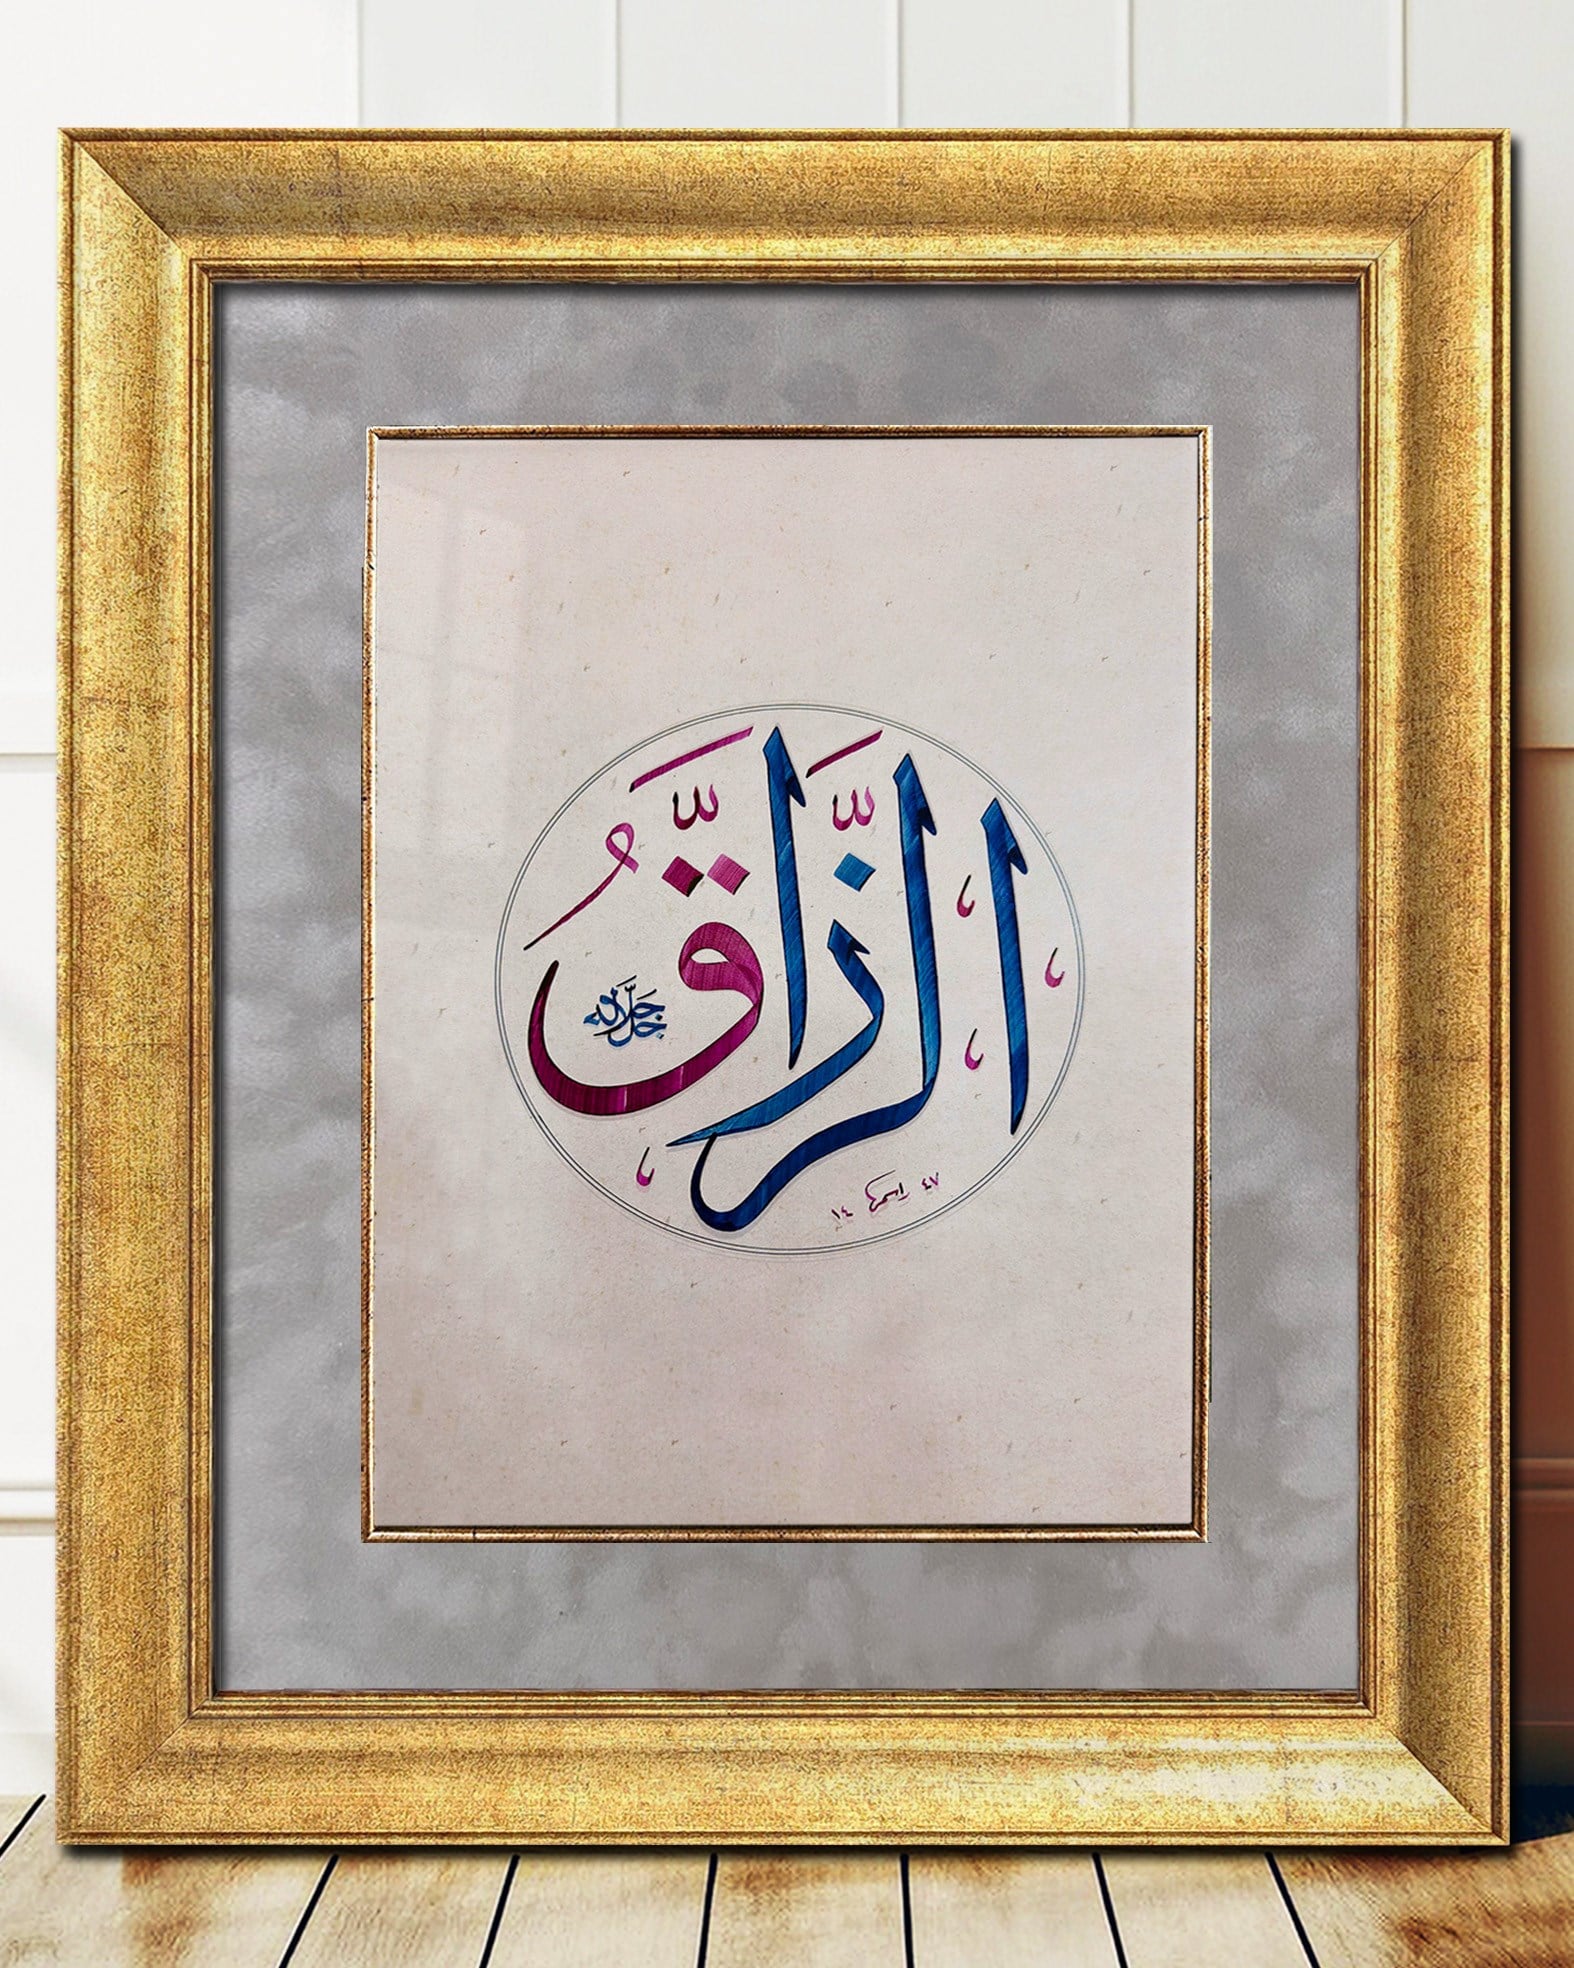 الرَّزَّاقُ
جل جلاله
١٤ ٤٧